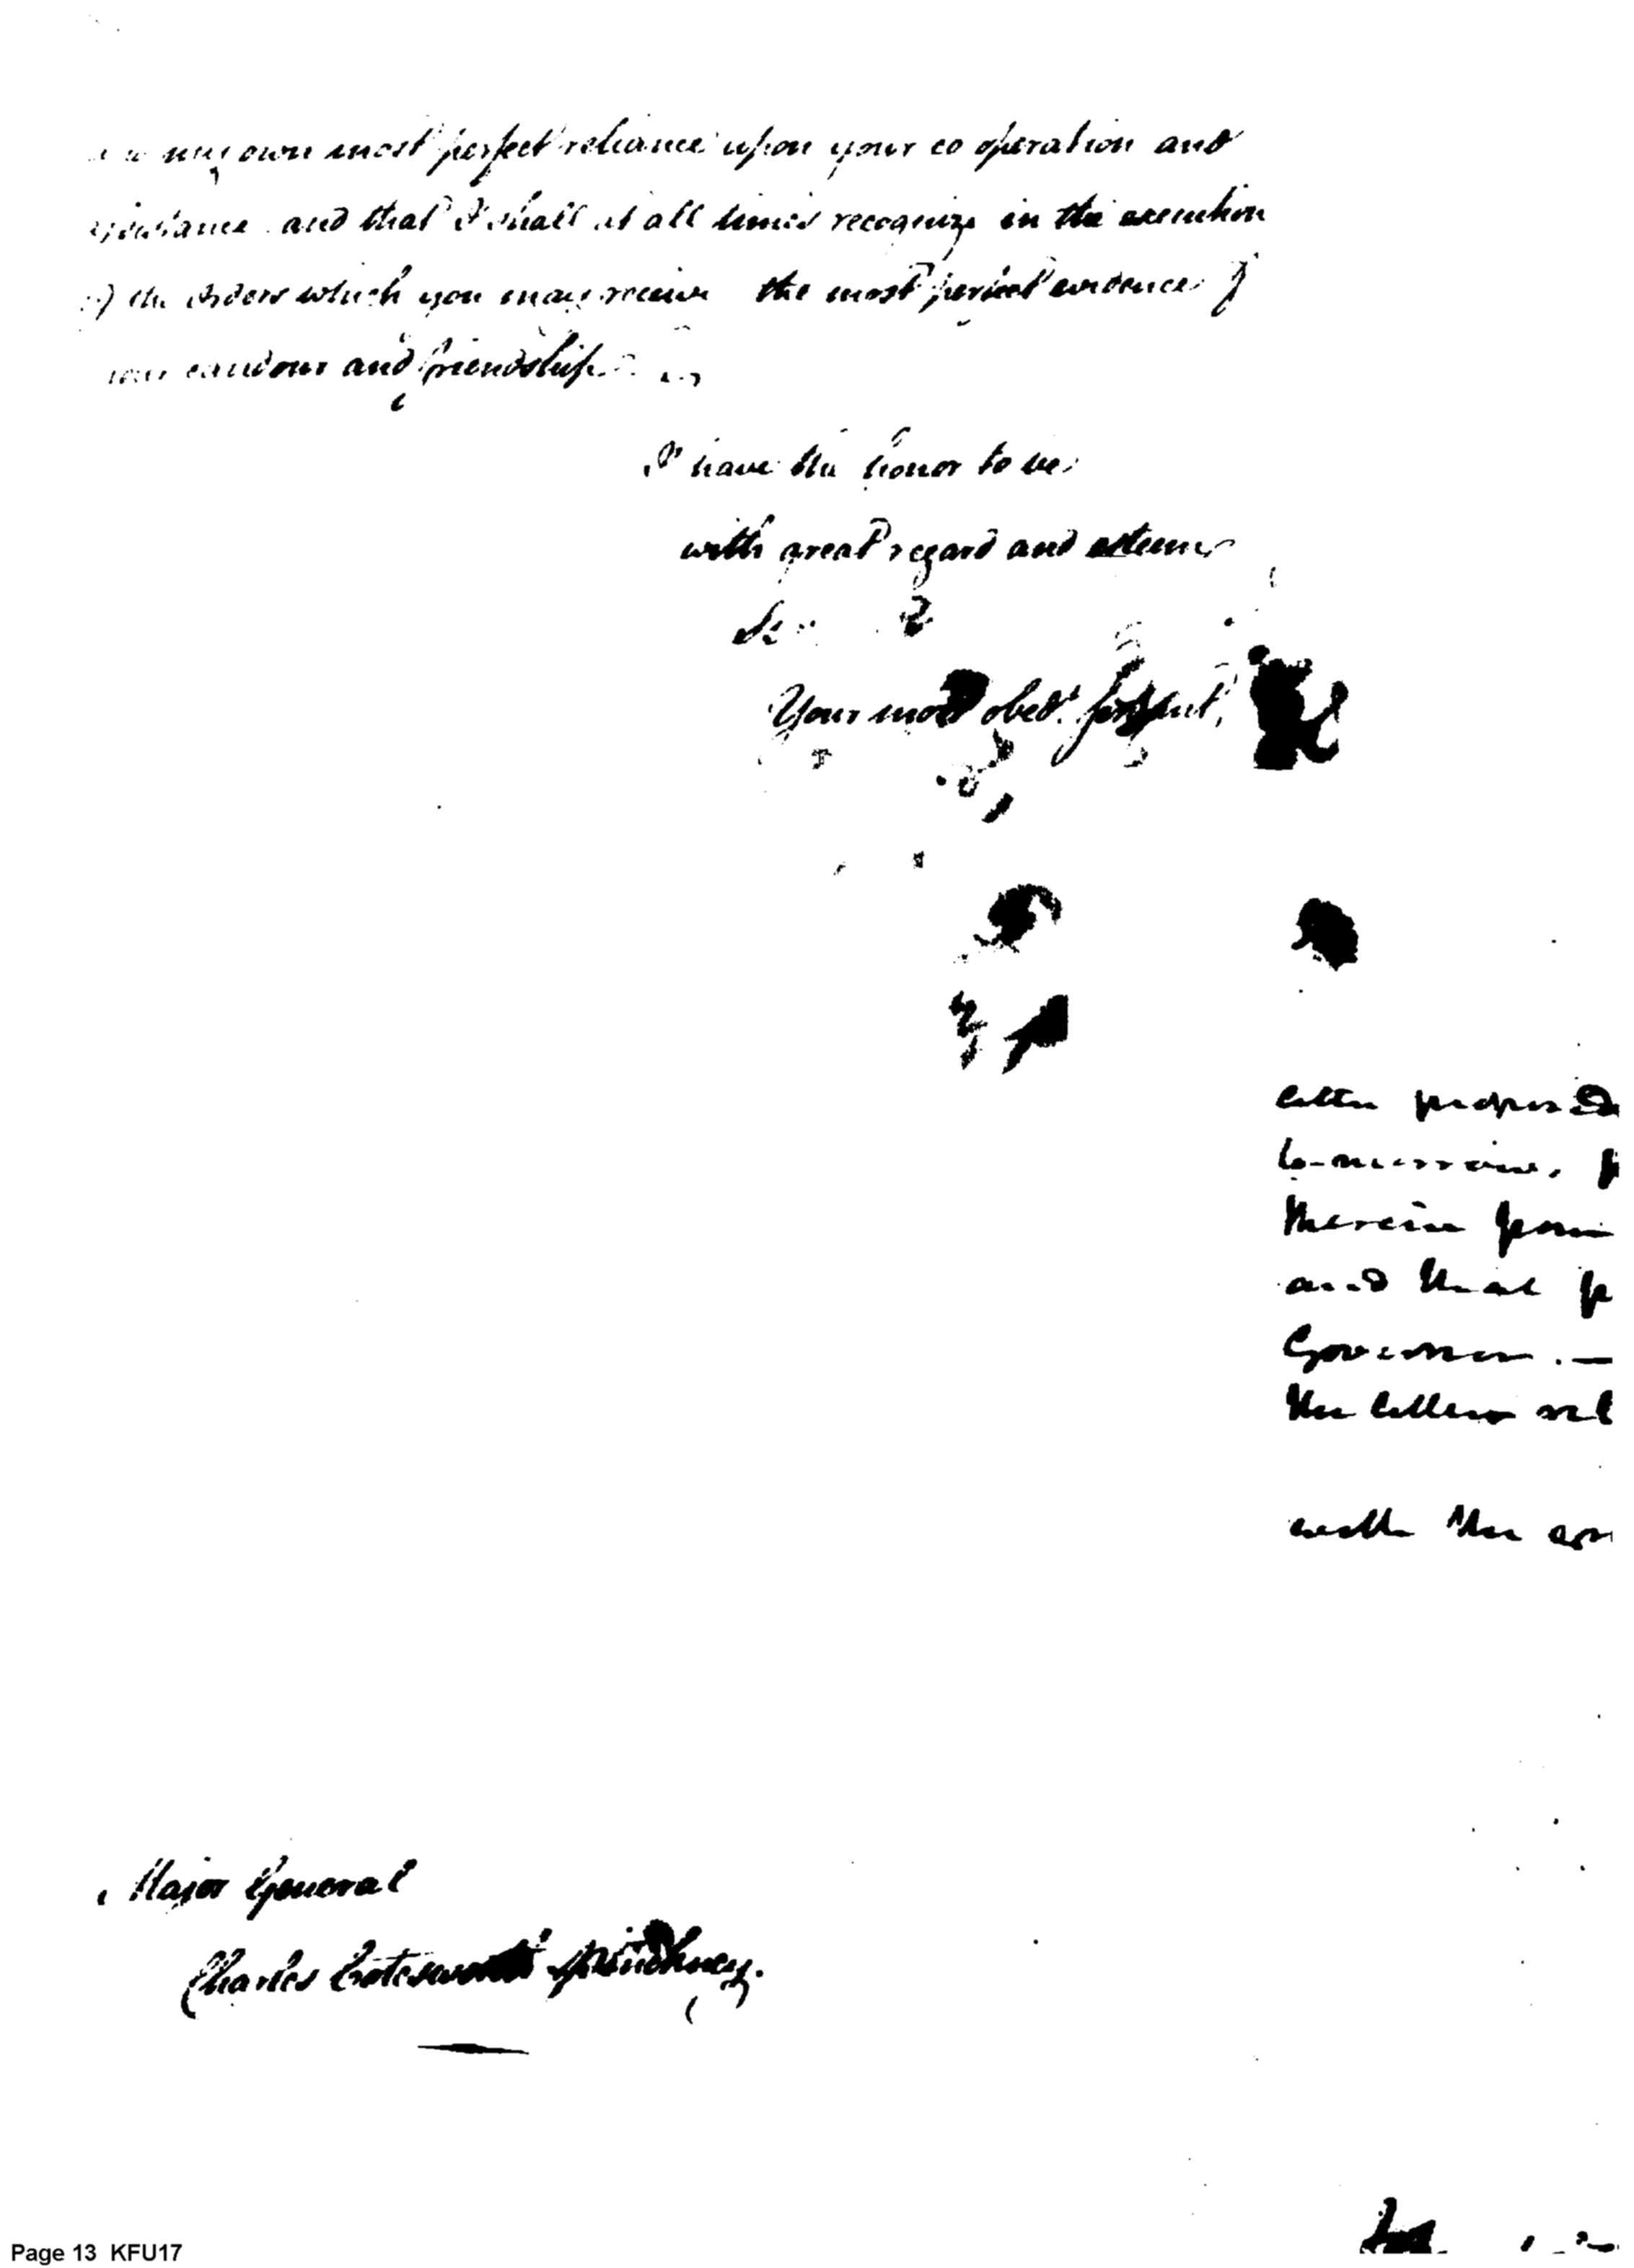 my own most perfect reliance upon your co operation and
and that I shall at all times recognize in the execution
the orders which you may receive the most perfect evidence of
candour and friendship
I have the honor to be
with great regard and esteem
Sir
Your most obed.t servant,
letter proposed
to-morrow,
therein
and that
Governor. —
the letters rel
with the
Major General
Charles Cotesworth Pinckney.
Page 13 KFU17